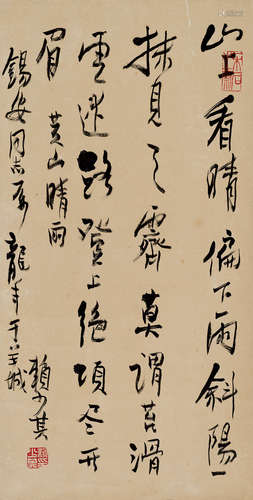 山上看晴偏下雨斜陽一
抹見之霽莫謂苔滑
雲迷路登上絕頂尽開
眉 黃山晴雨
錫安同志属 龍年于羊城
賴少其